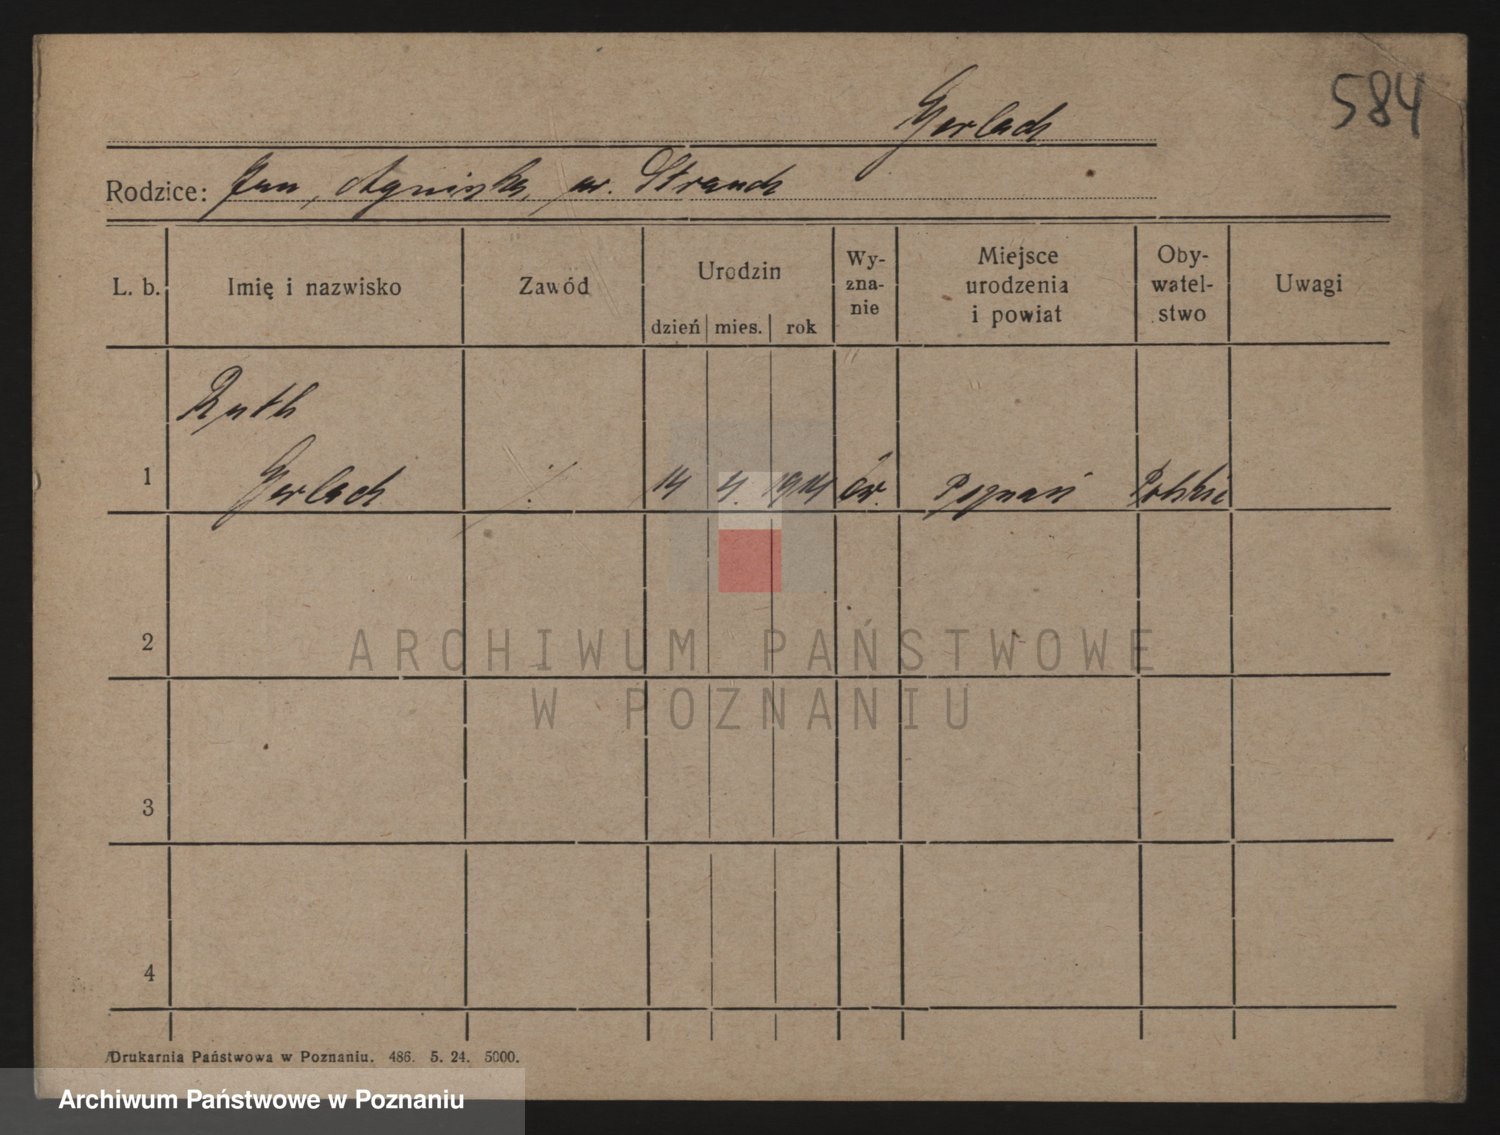 584
Gerlach
Rodzice: Jan, Agnieszka, ur. Strauch
L. b.
Imię i nazwisko
Zawód
Urodzin
dzień mies. rok
Wy-
zna-
nie
Miejsce
urodzenia
i powiat
Oby-
watel-
stwo
Uwagi
Ruth
1 Gerlach ./. 14 4. 1914 ew. Poznań Polskie
2
3
4
ARCHIWUM PAŃSTWOWE
W POZNANIU
Drukarnia Państwowa w Poznaniu. 486. 5. 24. 5000.
Archiwum Państwowe w Poznaniu